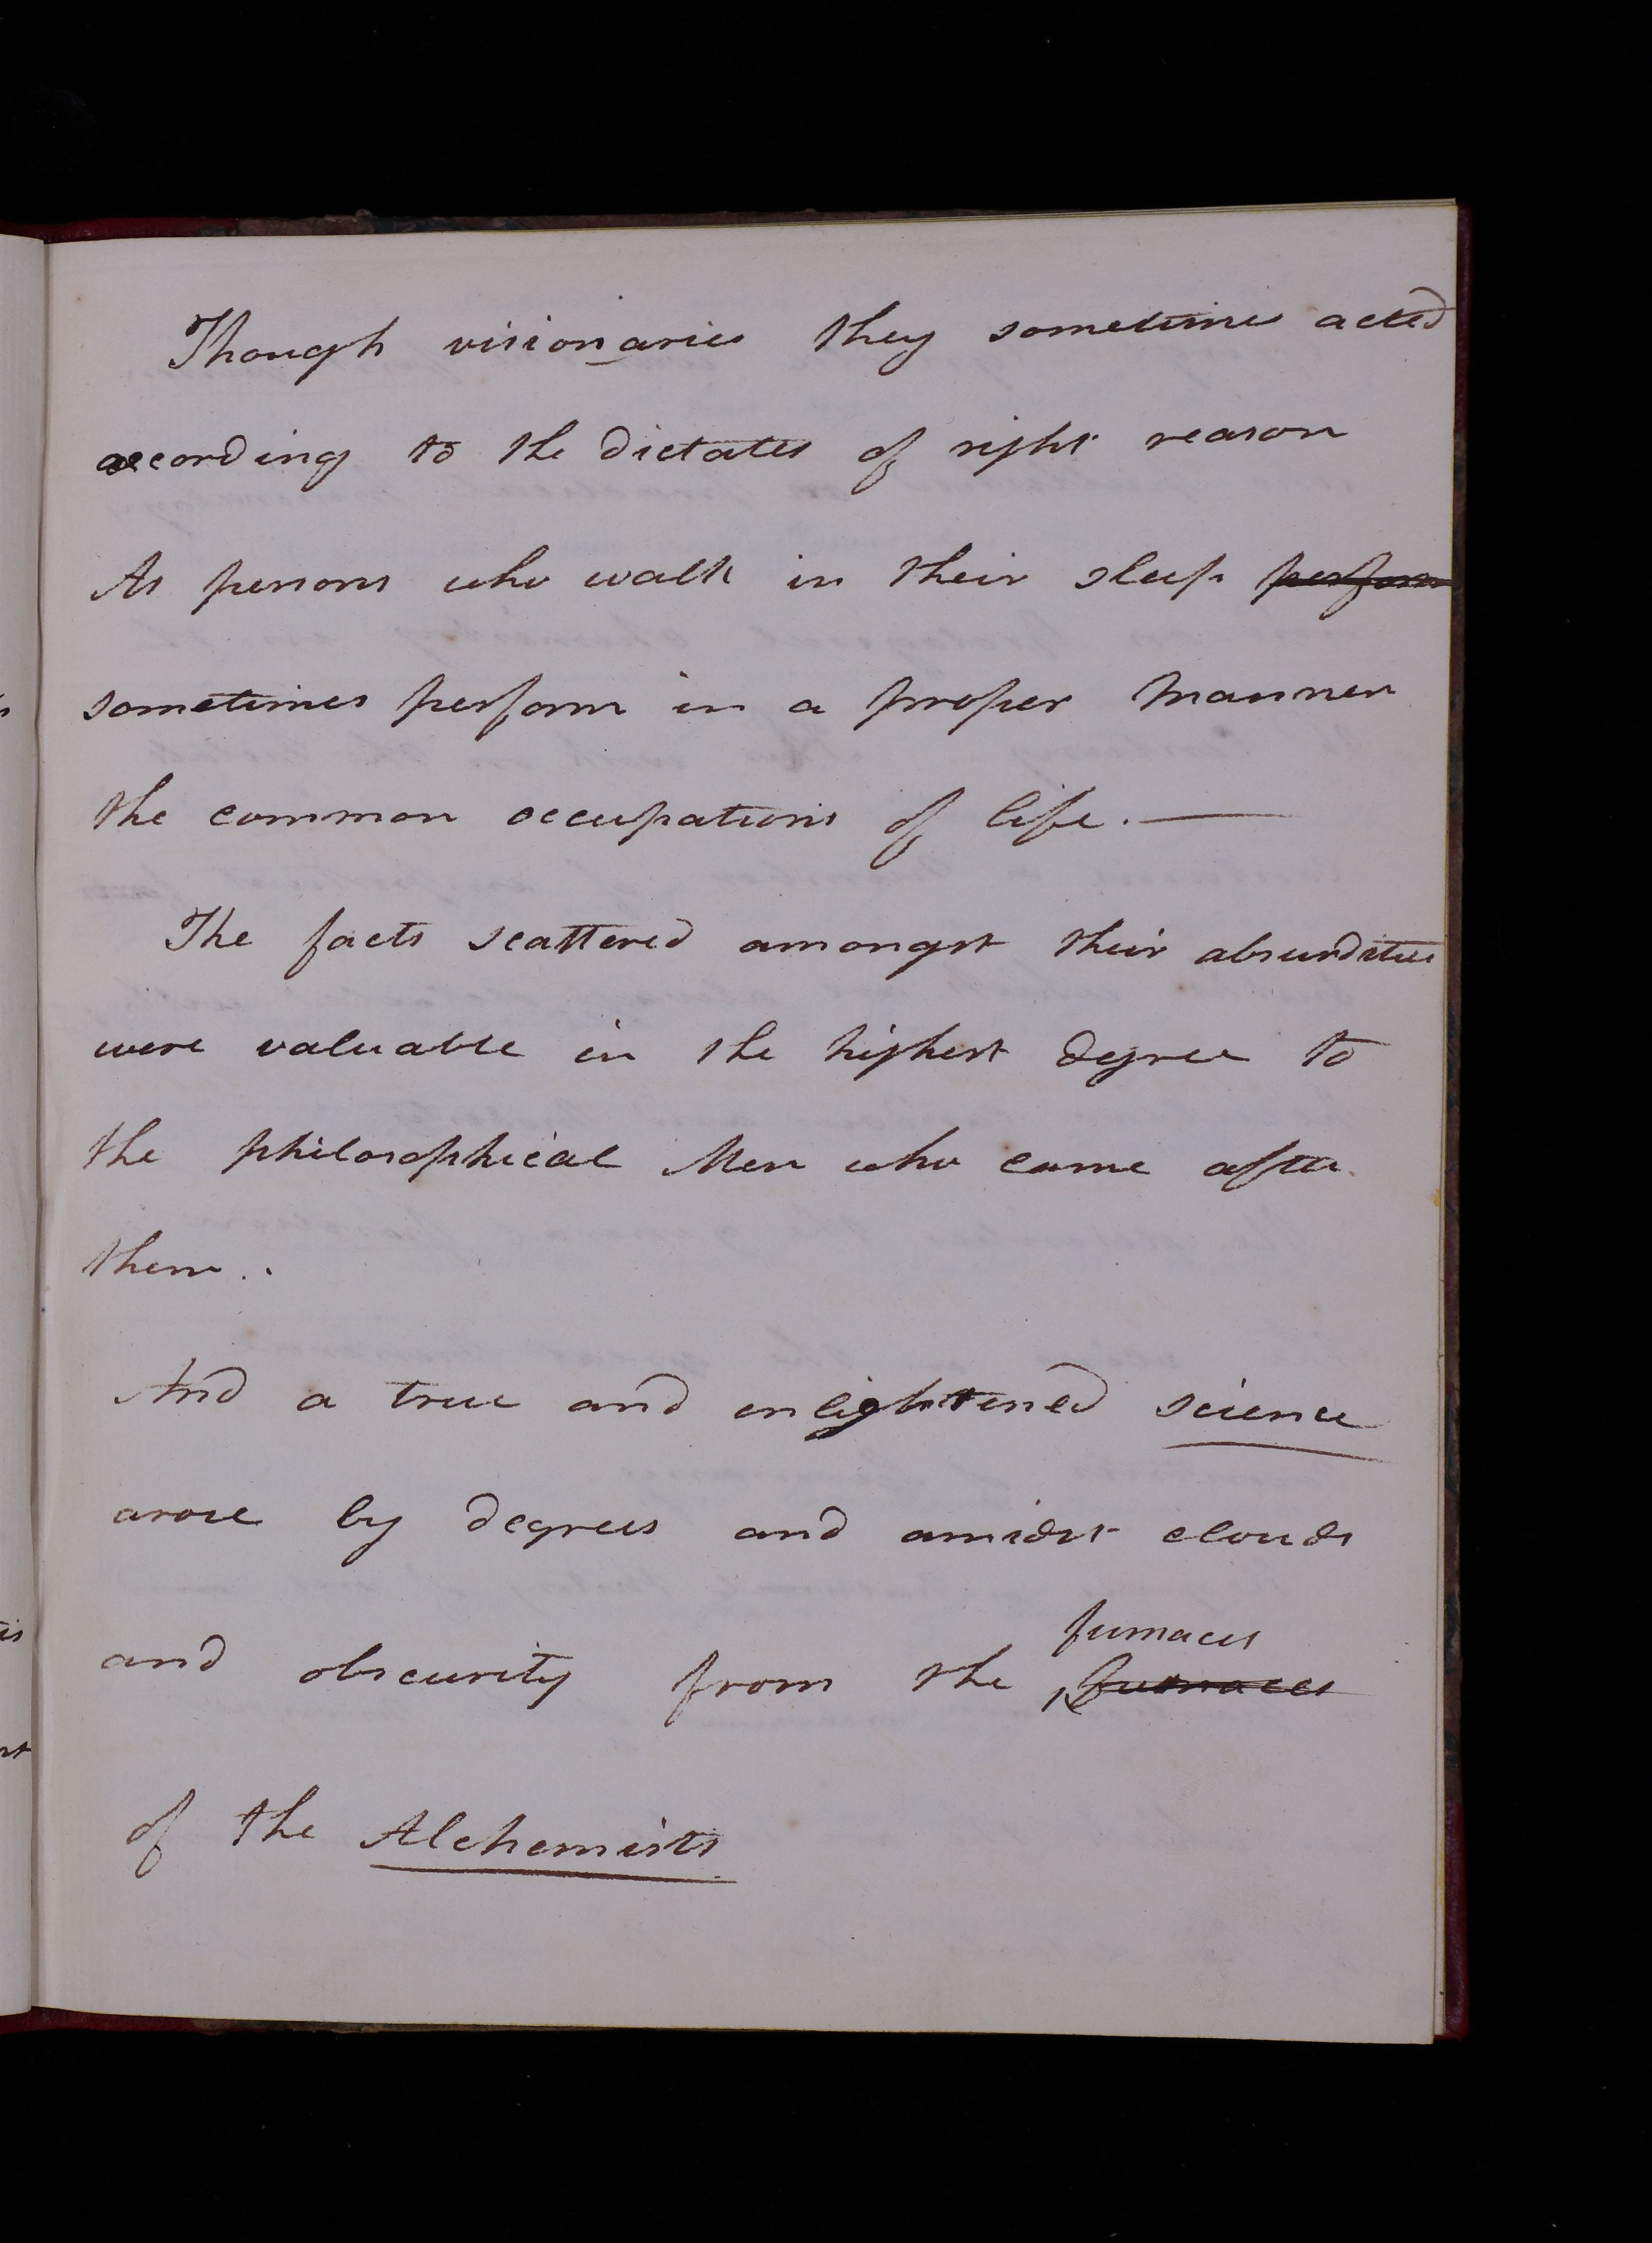 Though visionaries they sometimes acted
according to the dictates of right reason
As persons who walk in their sleep perform
sometimes perform in a proper Manner
the common occupations of life. —
The facts scattered amongst their absurdities
were valuable in the highest degree to
the philosophical Men who came after
them..
And a true and enlightened science
arose by degrees and amidst clouds
furnaces
and obscurity from the furnaces
of the Alchemists.